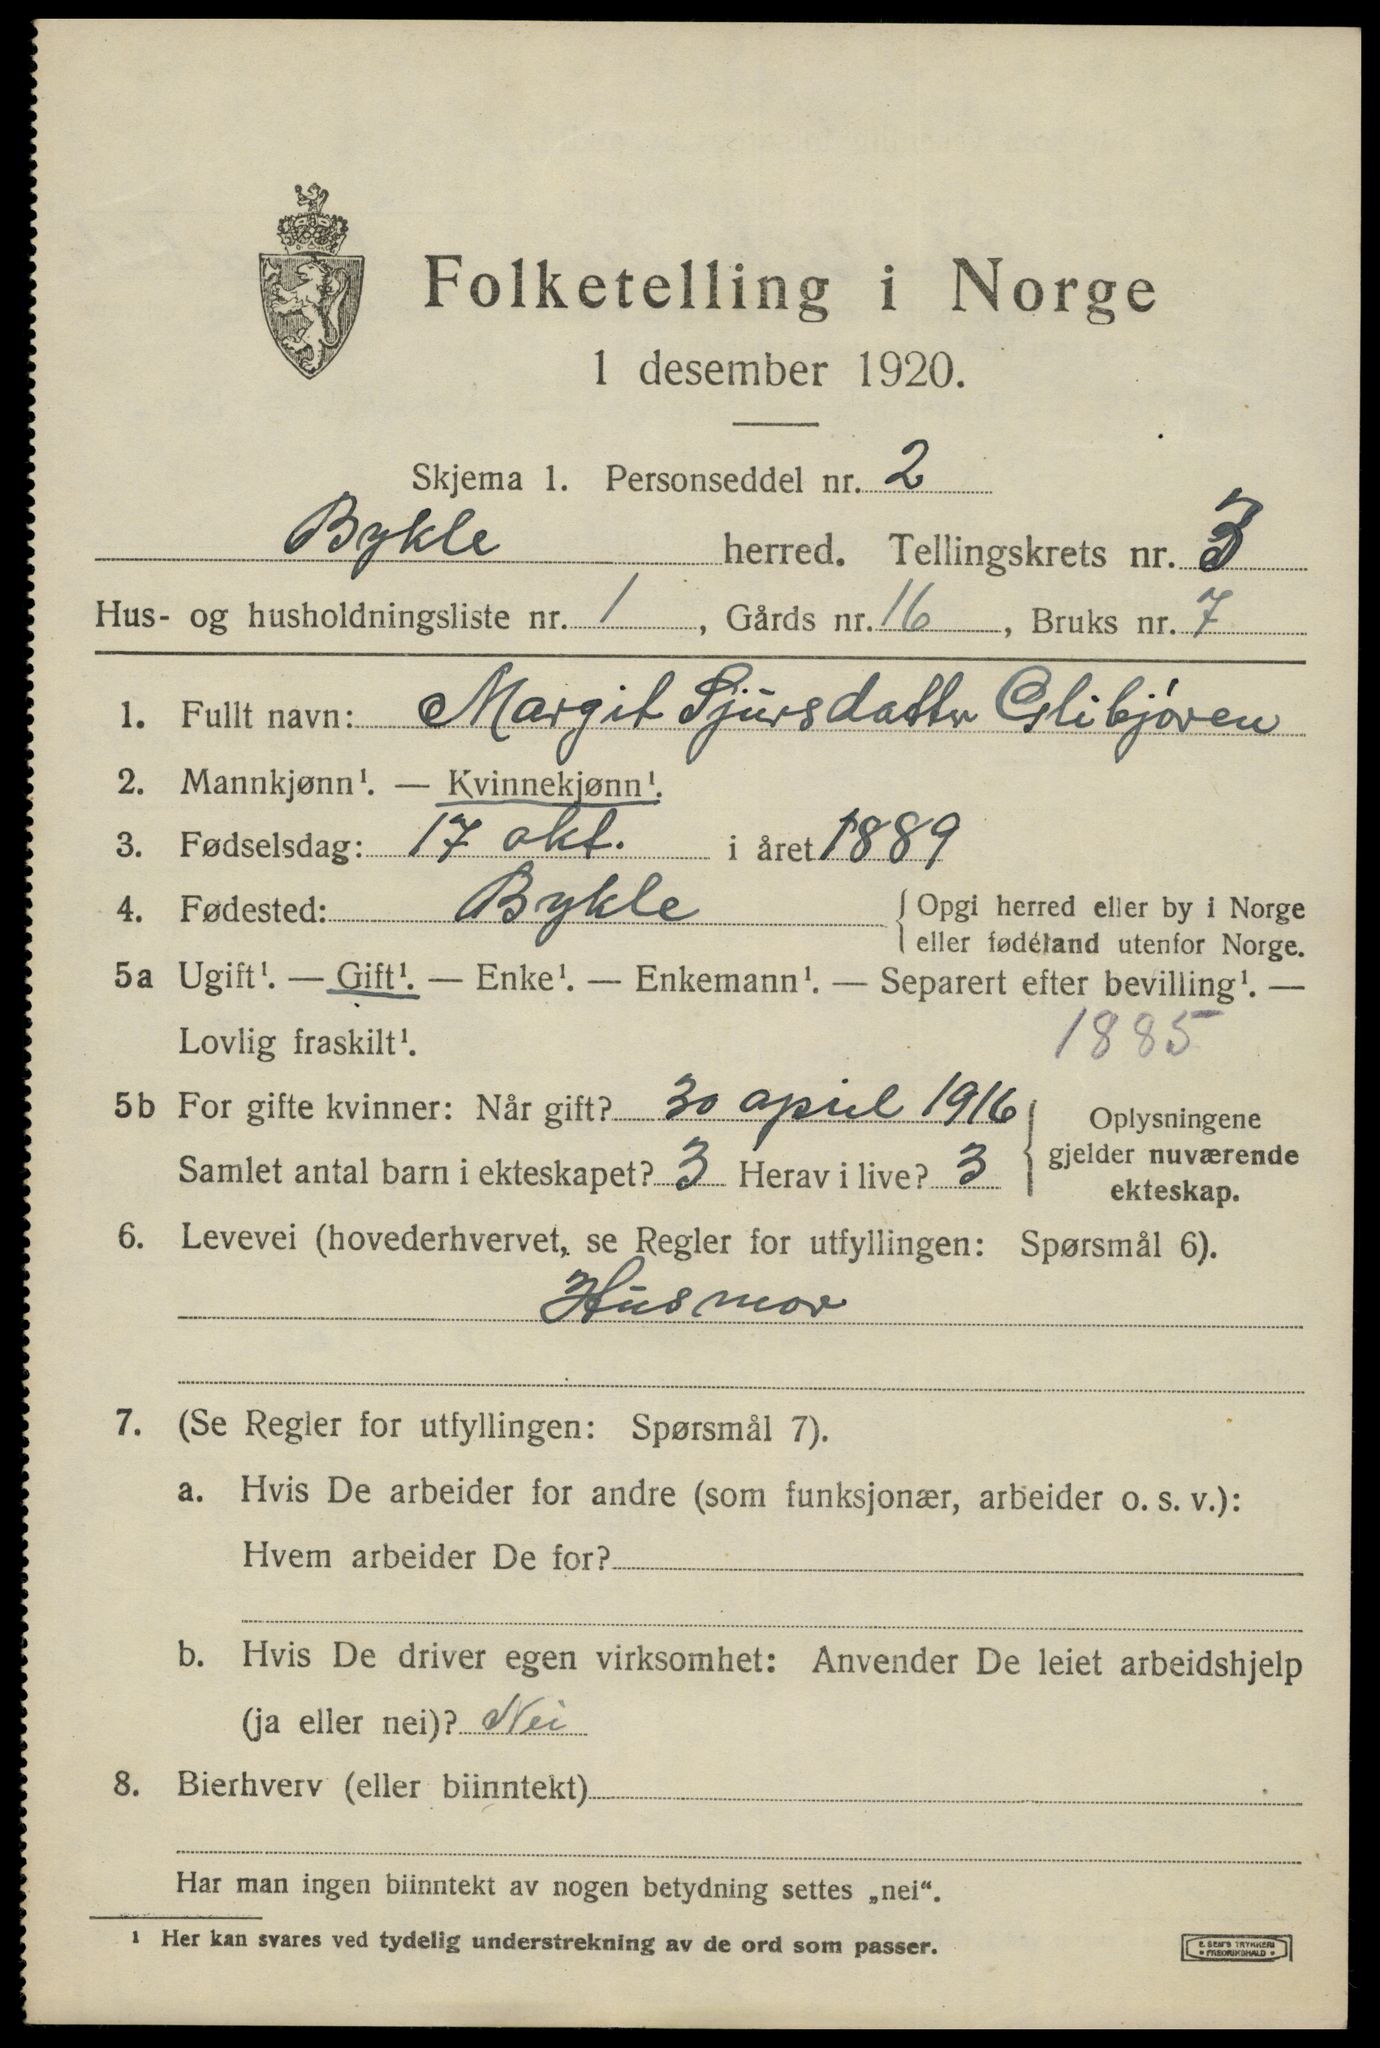 Folketelling i Norge
1 desember 1920.
Skjema 1. Personseddel nr. 2
Bykle herred. Tellingskrets nr. 3
Hus- og husholdningsliste nr. 1, Gårds nr. 16, Bruks nr. 7
1. Fullt navn: Margit Sjursdatter
2. Mannkjønn¹. — Kvinnekjønn¹.
3. Fødselsdag: 17 okt. i året 1889
4. Fødested: Bykle { Opgi herred eller by i Norge
eller fødeland utenfor Norge.
5a Ugift¹. — Gift¹. — Enke¹. — Enkemann¹. — Separert efter bevilling¹. —
Lovlig fraskilt¹. 1885
5b For gifte kvinner: Når gift? 30 april 1916
Samlet antal barn i ekteskapet? 3 Herav i live? 3
Oplysningene
gjelder nuværende
ekteskap.
6. Levevei (hovederhvervet, se Regler for utfyllingen: Spørsmål 6).
Husmor
7. (Se Regler for utfyllingen: Spørsmål 7).
a. Hvis De arbeider for andre (som funksjonær, arbeider o. s. v.):
Hvem arbeider De for?
b. Hvis De driver egen virksomhet: Anvender De leiet arbeidshjelp
(ja eller nei)? Nei
8. Bierhverv (eller biinntekt)
Har man ingen biinntekt av nogen betydning settes „nei“.
¹ Her kan svares ved tydelig understrekning av de ord som passer.
E. SEM'S TRYKKERI
FREDRIKSHALD